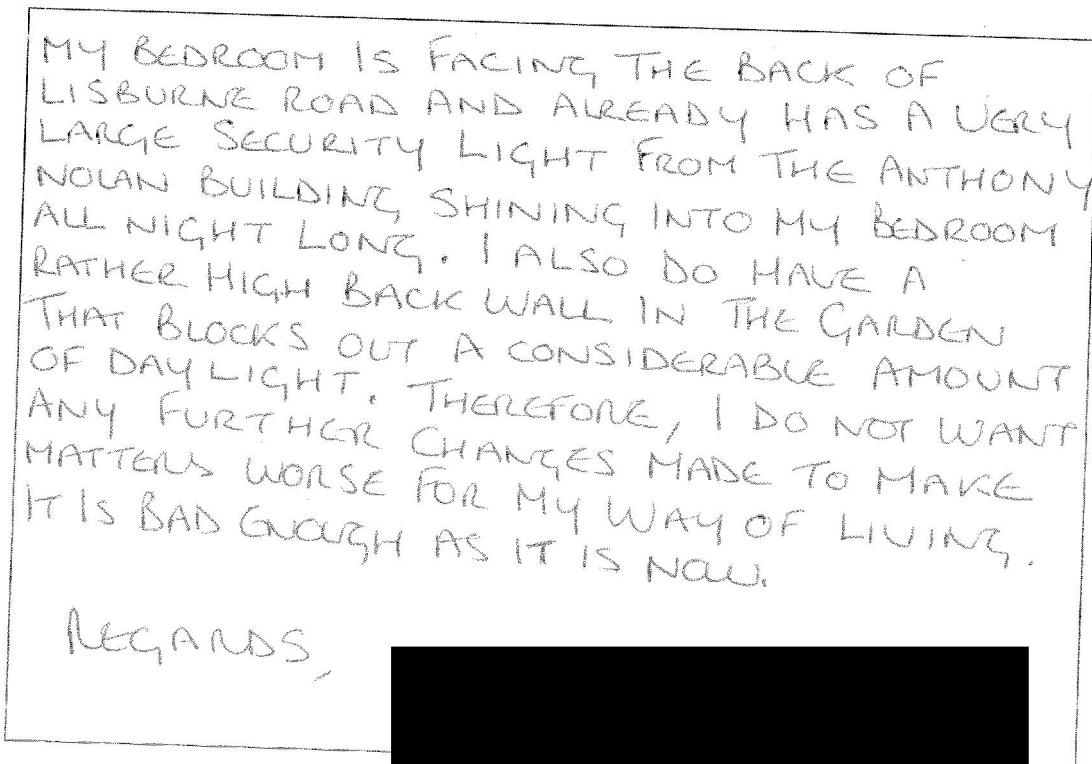 MY BEDROOM IS FACING THE BACK OF
LISBURNE ROAD AND ALREADY HAS A VERY
LARGE SECURITY LIGHT FROM THE ANTHONY
NOLAN BUILDING SHINING INTO MY BEDROOM
ALL NIGHT LONG. I ALSO DO HAVE A
RATHER HIGH BACK WALL IN THE GARDEN
THAT BLOCKS OUT A CONSIDERABLE AMOUNT
OF DAY LIGHT. THEREFORE, I DO NOT WANT
ANY FURTHER CHANGES MADE TO MAKE
MATTERS WORSE FOR MY WAY OF LIVING.
IT IS BAD ENOUGH AS IT IS NOW.
REGARDS,